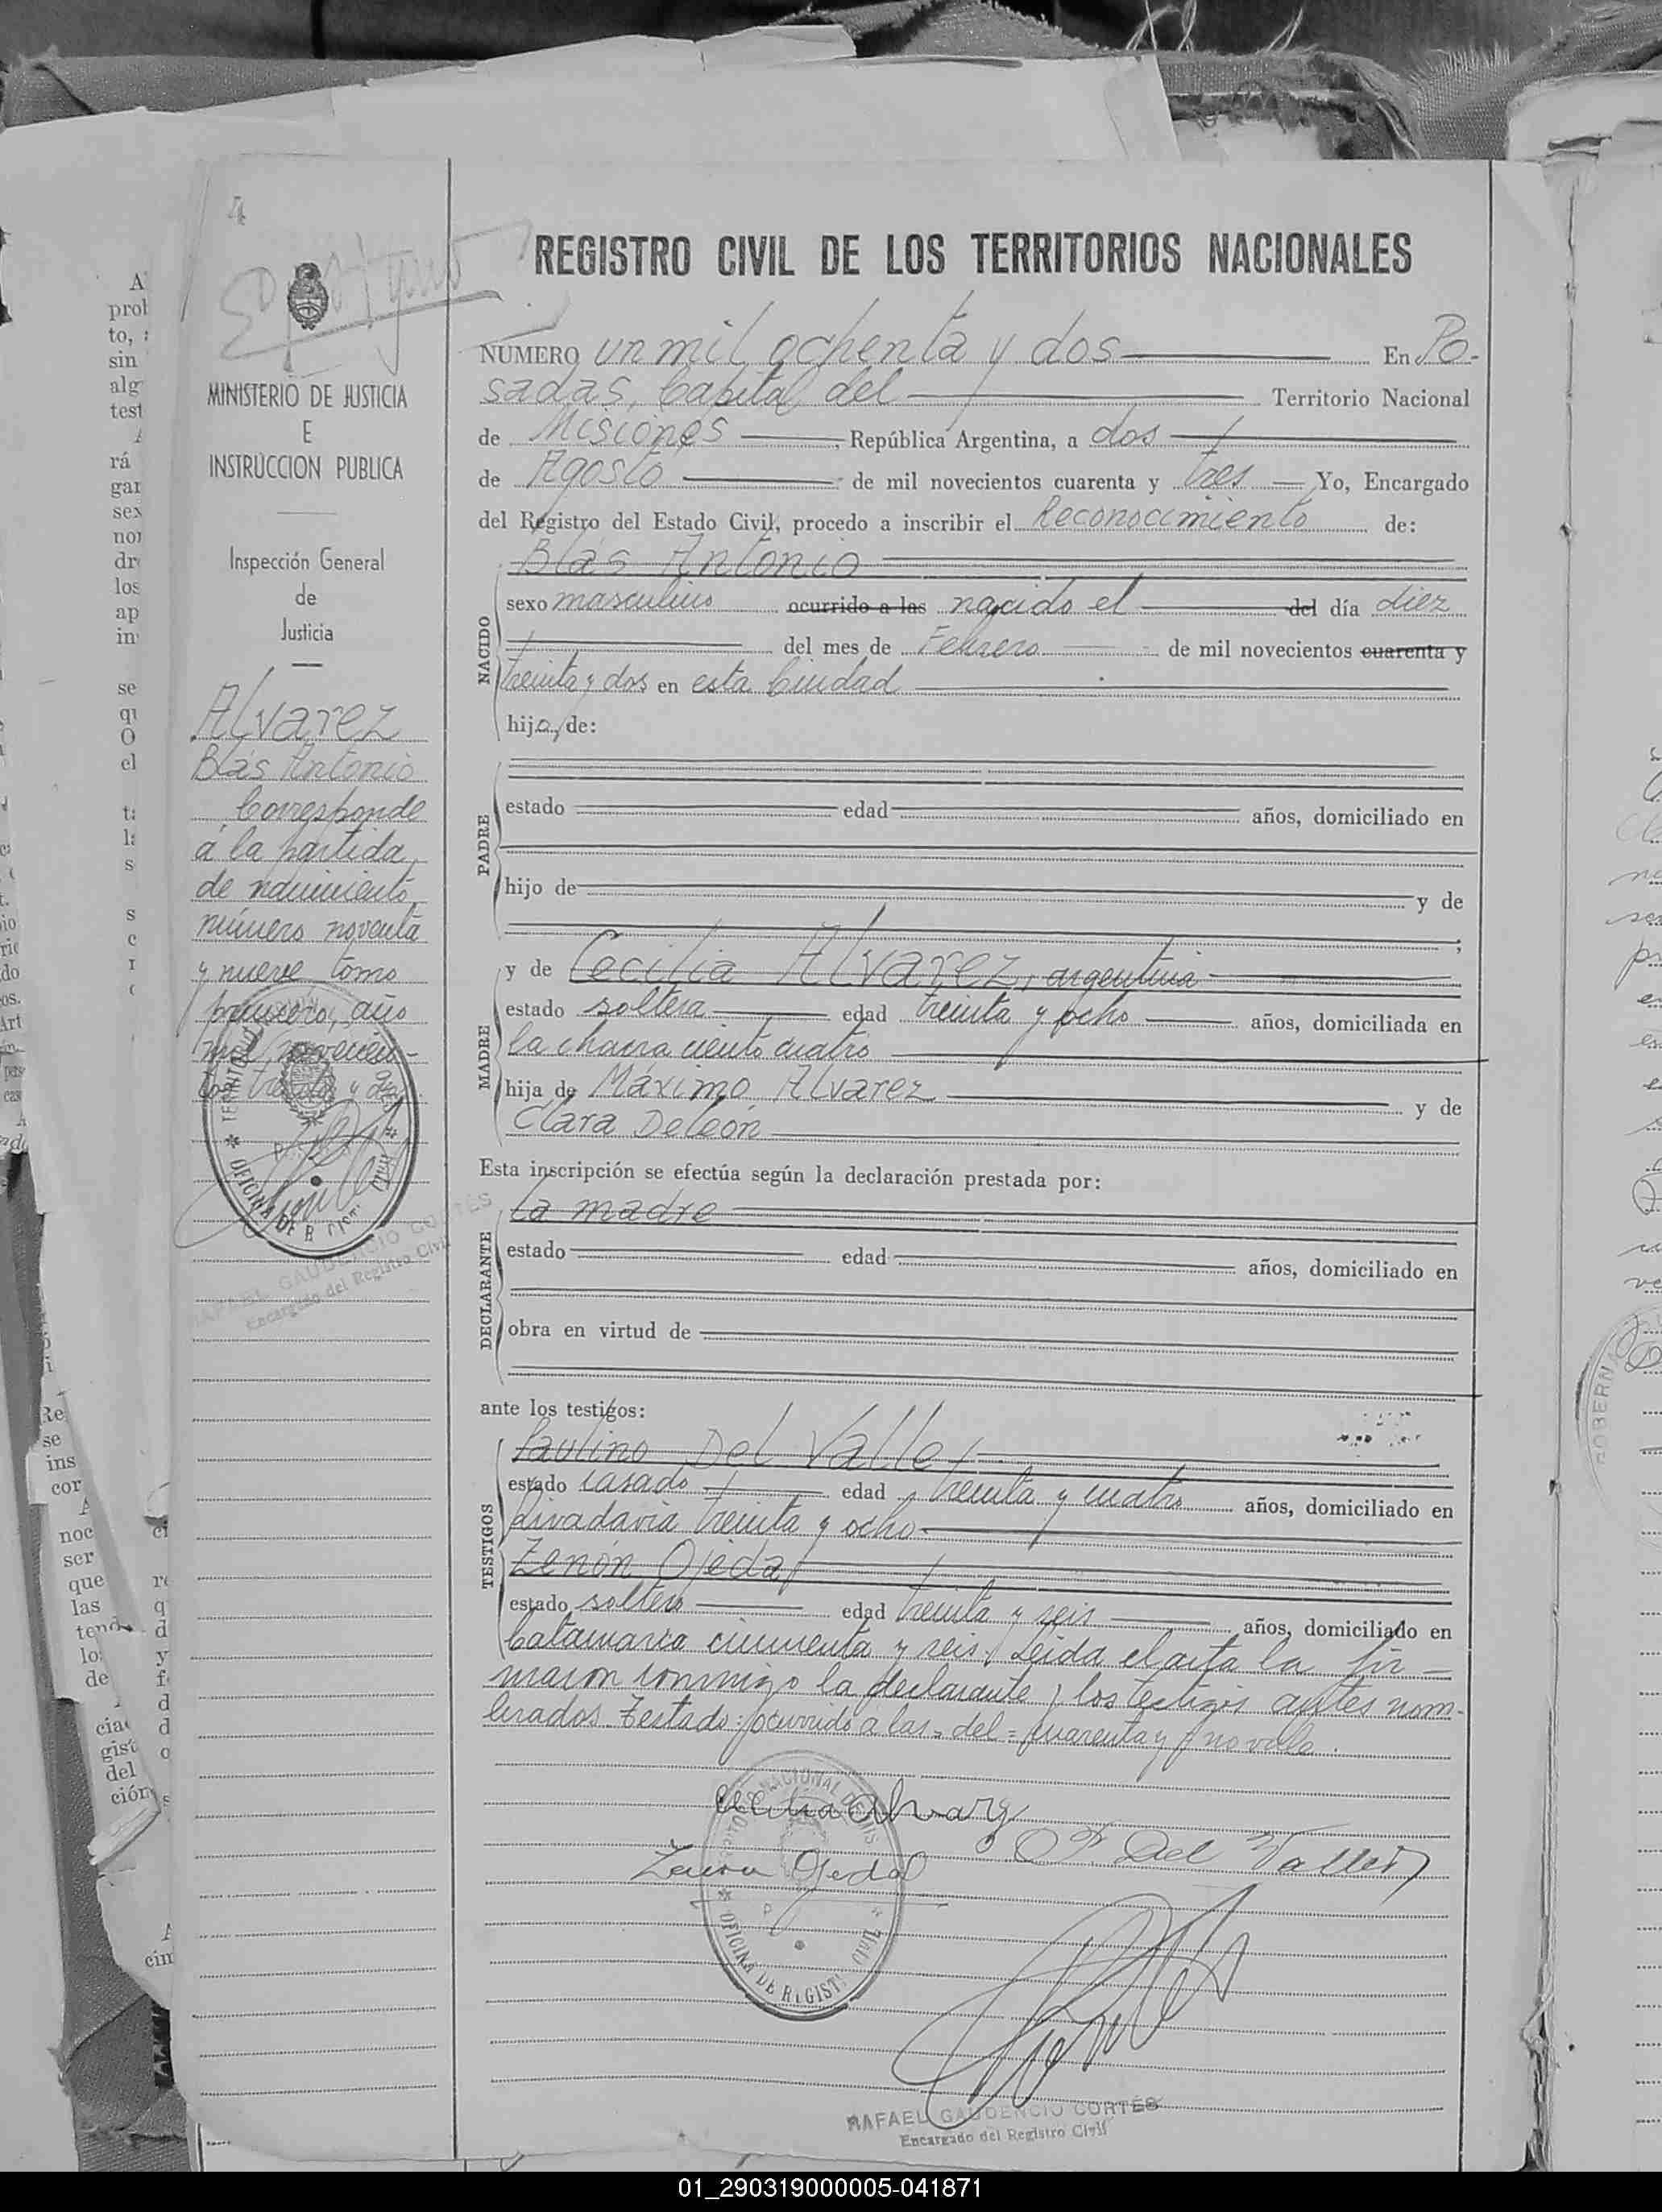 4
REGISTRO CIVIL DE LOS TERRITORIOS NACIONALES
MINISTERIO DE JUSTICIA
E
INSTRUCCION PUBLICA
Inspección General
de
Justicia
Alvarez
Blás Antonio
Corresponde
á la partida
de nacimiento
número noventa
y nueve tomo
primero, año
mil novecien-
tos treinta y dos.
RAFAEL GAUDENCIO CORTÉS
Encargado del Registro Civil
NUMERO un mil ochenta y dos En Po-
sadas, Capital del Territorio Nacional
de Misiones, República Argentina, a dos
de Agosto de mil novecientos cuarenta y tres Yo, Encargado
del Registro del Estado Civil, procedo a inscribir el Reconocimiento de:
Blás Antonio
NACIDO
sexo masculino ocurrido a las nacido el del día diez
del mes de Febrero de mil novecientos cuarenta y
treinta y dos en esta Ciudad
hijo, de:
PADRE
estado edad años, domiciliado en
hijo de y de
;
MADRE
y de Cecilia Alvarez, argentina
estado soltera edad treinta y ocho años, domiciliada en
la chacra ciento cuatro
hija de Máximo Alvarez y de
Clara Deleón
Esta inscripción se efectúa según la declaración prestada por:
La madre
DECLARANTE
estado edad años, domiciliado en
obra en virtud de
ante los testigos:
TESTIGOS
Paulino Del Valle
estado casado edad treinta y cuatro años, domiciliado en
Rivadavia treinta y ocho
Zenón Ojeda
estado soltero edad treinta y seis años, domiciliado en
Catamarca cincuenta y seis. Leida el acta la fir-
maron conmigo la declarante y los testigos antes nom-
brados. Testado: ocurrido a las = del = cuarenta y = no vale.
Cecilia Alvarez
Zenon Ojeda
P. Del Valle
OFICINA DE REGISTRO CIVIL
RAFAEL GAUDENCIO CORTÉS
Encargado del Registro Civil
01_290319000005-041871